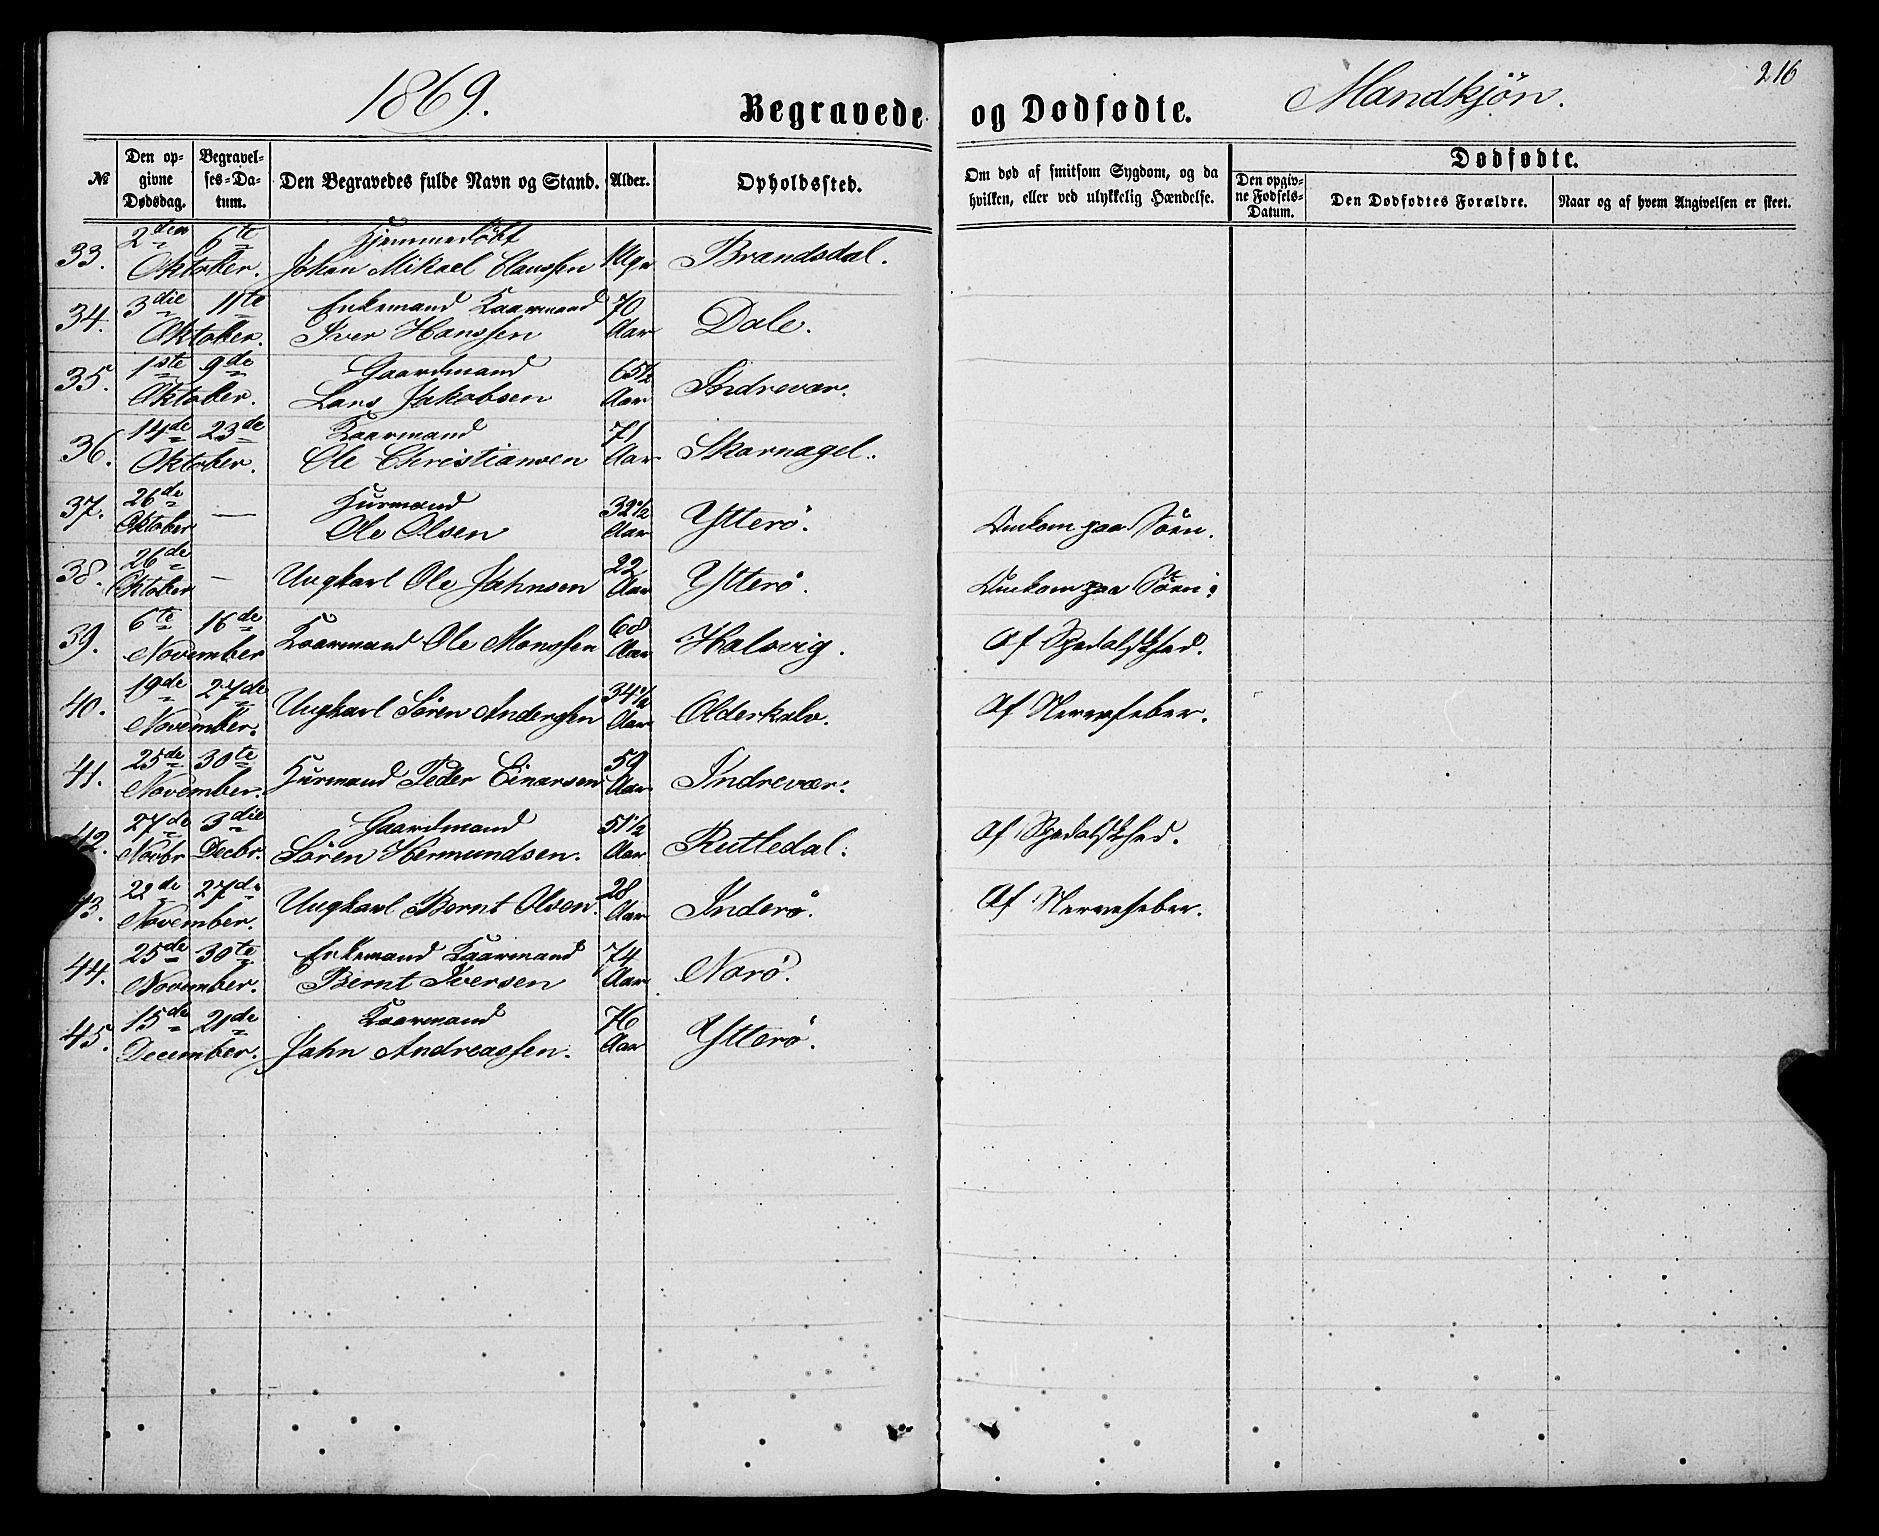 1869. Begravede og Dødfødte. Mandkjøn. 216
№ Den opgivne Dødsdag. Begravelses-Datum. Den Begravedes fulde Navn og Stand. Alder. Opholdssted. Om død af smitsom Sygdom, og da hvilken, eller ved ulykkelig Hændelse. Dødfødte. Den opgivne Fødsels-Datum. Den Dødfødtes Forældre. Naar og af hvem Angivelsen er skeet.
33. 2den 6te Oktober. Hjemmedøbt Johan Mikael Claussen Brandsdal.
34. 3die 11te Oktober. Enkemand Kaarmand Iver Hanssen 70 Aar Dale.
35. 1ste 9de Oktober. Gaardmand Lars Jakobsen 65½ Aar Indrevær.
36. 14de 23de Oktober. Kaarmand Ole Christiansen 71 Aar Skarnagel.
37. 26de Oktober — Husmand Ole Olsen 32½ Aar Ytterø. Omkom paa Søen.
38. 26de Oktober — Ungkarl Ole Jahnsen 22 Aar Ytterø. Omkom paa Søen.
39. 6te 16de November Kaarmand Ole Monssen 68 Aar Halsvig. Af Spedalskhed.
40. 19de 27de November. Ungkarl Sören Anderssen 34½ Aar Olderkalv. Af Nervefeber.
41. 25de 30te November. Husmand Peder Einarsen 59 Aar Indrevær.
42. 27de Novbr 3die Decbr. Gaardmand Sören Hermundsen. 51½ Aar Rutledal. Af Spedalskhed.
43. 22de 27de November. Ungkarl Bernt Olsen. 28 Aar Inderø. Af Nervefeber.
44. 25de 30te November. Enkemand Kaarmand Bernt Iversen 74 Aar Norö.
45. 15de 21de December. Kaarmand Jahn Andreassen. 76 Aar Ytterø.